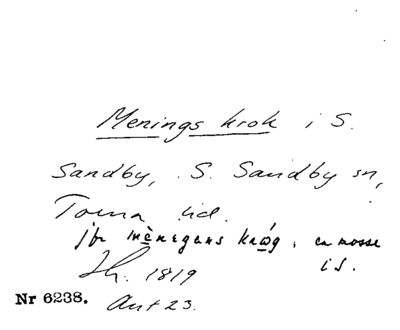 Menings krok i S.
Sandby, S. Sandby sn,
Torna hd.
jfr mènegans kråg, en mosse
i S.
Sk. 1819
Nr 6238. Ant 23.